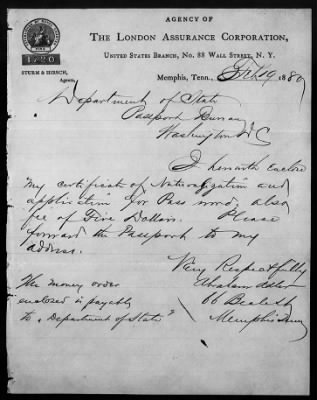 AGENCY OF
THE LONDON ASSURANCE CORPORATION,
UNITED STATES BRANCH, No. 88 WALL STREET, N. Y.
1720
STURM & HIRSCH,
Agents,
Memphis, Tenn., Feb 19 1889
Department of State
Passport Bureau
Washington D C
I herewith Enclose
My certificate of Naturalization and
application for Pass word; also
fee of Five Dollars. Please
forward the Passport to my
address.
Very Respectfully
Abraham
66 Beale St
Memphis Tenn
The money order
enclosed is payable
to "Department of State"